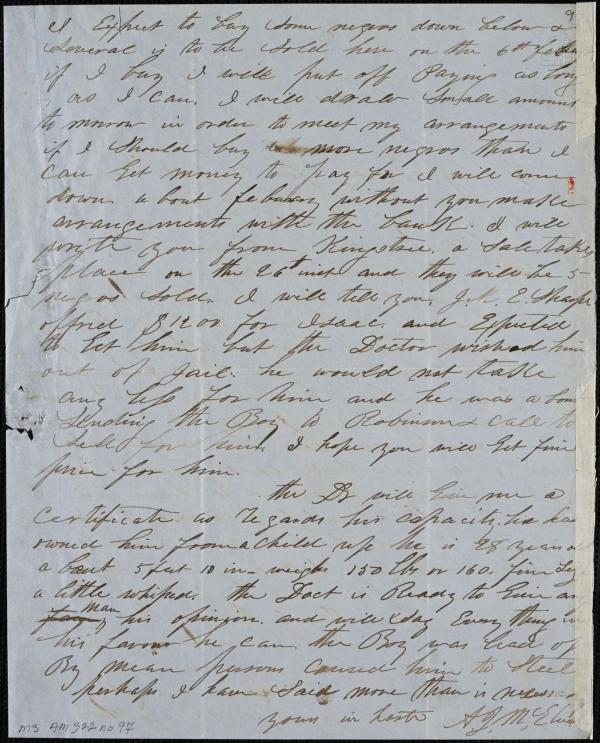 9
I Expect to buy some negros down below &
Several is to be Sold here on the 6th
if I buy I will put off Paying as long
as I can. I will draw Small amount
to morrow in order to meet my arrangements
if I Should buy more negros than I
can Get money to pay for I will come
down a bout febuary without you make
arrangements with the bank. I will
write you from Kingstree. a Sale takes
place on the 26th inst and they will be 5
negros Sold. I will tell you J. M. E. Sharpe
offred $1200 for Isaac. and Expected
to Get him but the Doctor wished him
out of Jail. he would not take
any less for him and he was a bout
Sending the Boy to Robinson & Call to
Sell for him. I hope you will Get fine
price for him.
the Dr will Give me a
Certificate as regards his capacity. he has
owned him from a child up he is 28 years
a bout 5 feet 10 in— weighs 150 lbs or 160. fine
a little whiped. the Doct is Ready to Give as
man his opinion. and will Say Every thing in
his favour he can the Boy was lead of
By mean persons Caused him to Steel
perhaps I have Said more than is
yours in haste A. J. McElveen
MS AM 322 no 97